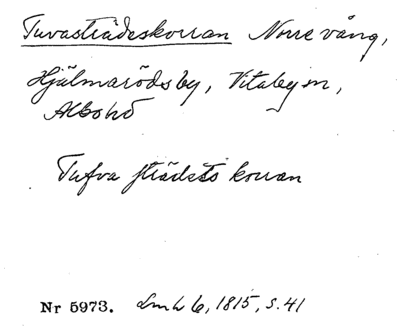 Tuvasträdeskorran Norrevång,
Hjälmarödsby, Vitaby sn,
Albo hd
Tufva strädets korran
Nr 5973. Lmh 6, 1815, s. 41